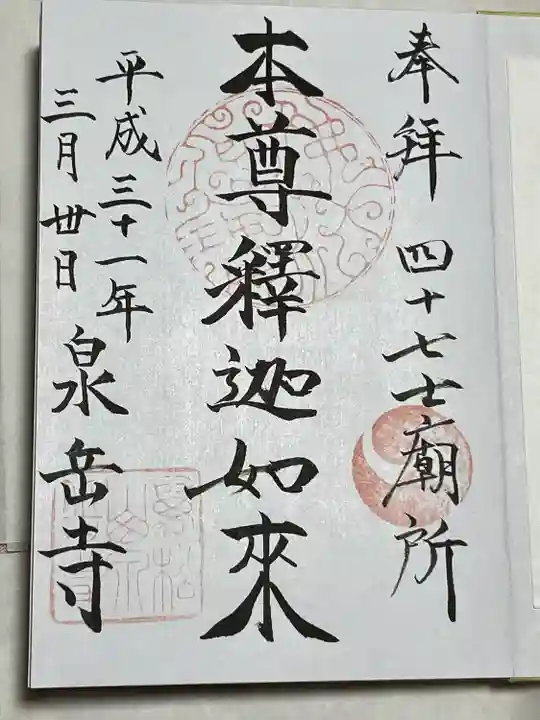 奉拝 四十七士廟所
本尊釋迦如來
平成三十一年
三月丗日 泉岳寺